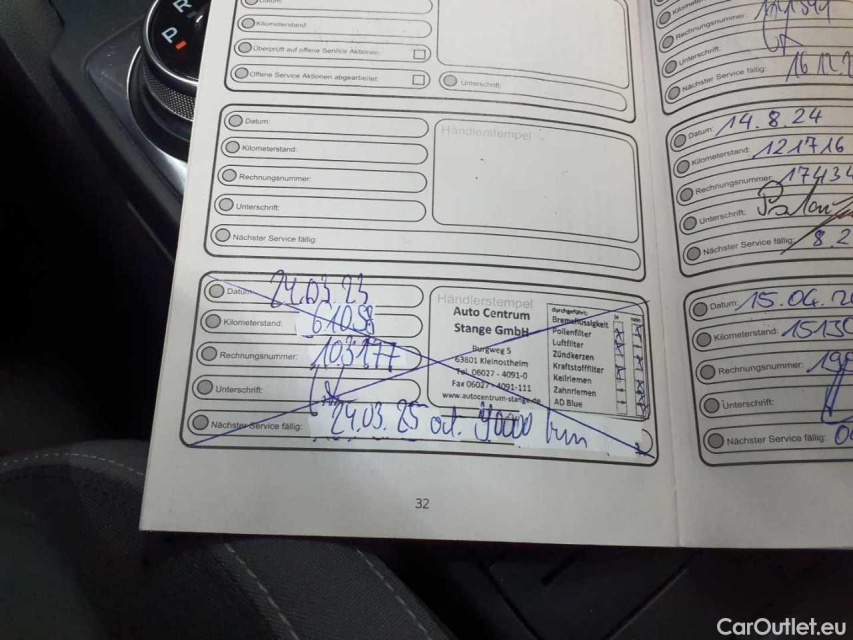 P R
Datum:
Kilometerstand:
Überprüft auf offene Service Aktionen
Offene Service Aktionen abgearbeitet
Unterschrift:
Datum:
Kilometerstand:
Rechnungsnummer:
Unterschrift:
Nächster Service fällig:
Händlerstempel
Datum: 24.03.23
Kilometerstand: 61058
Rechnungsnummer:
Unterschrift:
Nächster Service fällig: 24.03.25 od. 90000 km
Händlerstempel
Auto Centrum
Stange GmbH
Burgweg 5
63801 Kleinostheim
Tel. 06027 - 4091-0
Fax 06027 - 4091-111
www.autocentrum-stange.de
durchgeführt: ja nein
Bremsflüssigkeit
Pollenfilter
Luftfilter
Zündkerzen
Kraftstofffilter
Keilriemen
Zahnriemen
AD Blue
32
Rechnungsnummer:
Unterschrift:
Nächster Service fällig: 16.12.2
Datum: 14.8.24
Kilometerstand: 121716
Rechnungsnummer: 17434
Unterschrift:
Nächster Service fällig: 8.2
Datum: 15.04.20
Kilometerstand: 15139
Rechnungsnummer: 199
Unterschrift:
Nächster Service fällig:
CarOutlet.eu